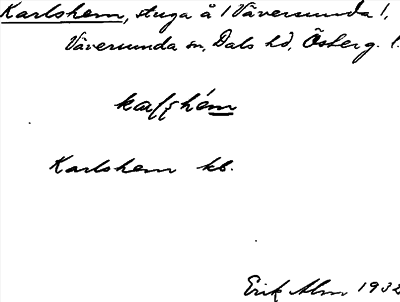 Karlshem, stuga å 1 Väversunda 1,
Väversunda sn, Dals hd, Österg. l.
Karlshem kb.
Erik Alm 1932